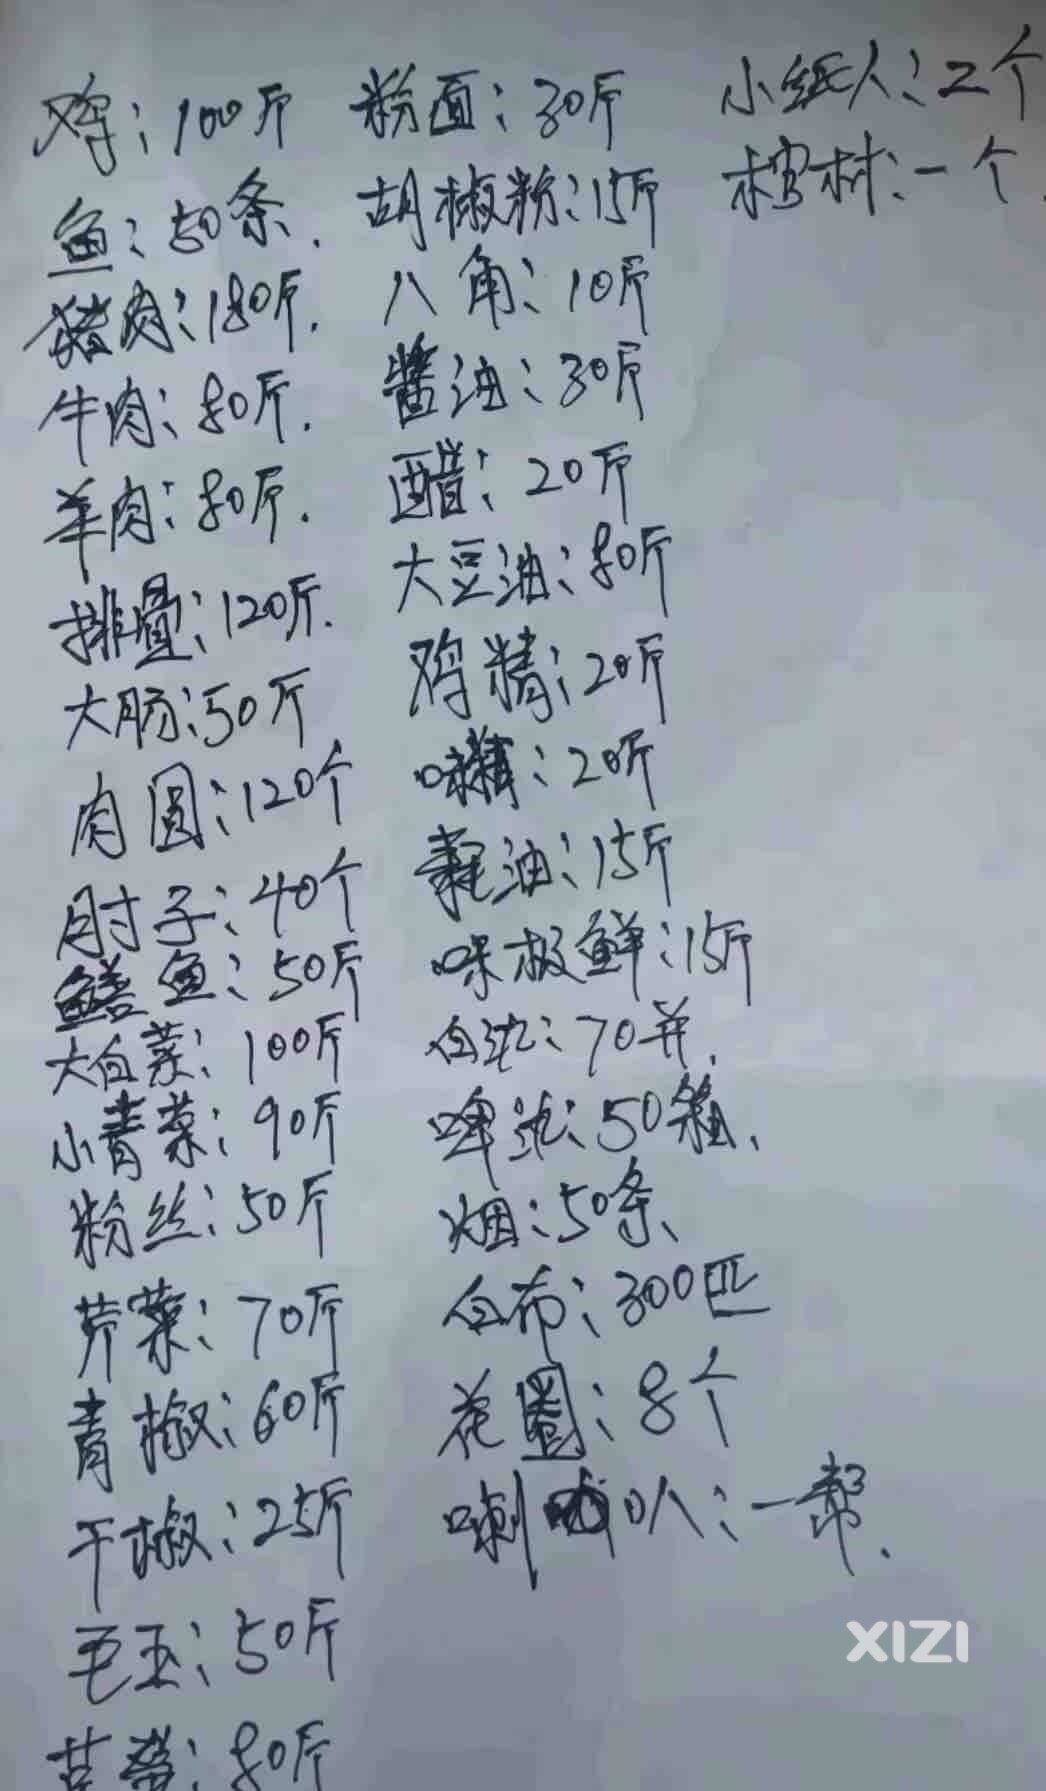 鸡：100斤
鱼：50条.
猪肉：180斤.
牛肉：80斤.
羊肉：80斤.
排骨：120斤.
大肠：50斤
肉圆：120个
肘子：40个
鳝鱼：50斤
大白菜：100斤
小青菜：90斤
粉丝：50斤
芹菜：70斤
青椒：60斤
干椒：25斤
毛玉：50斤
：80斤
粉面：30斤
胡椒粉：15斤
八角：10斤
酱油：30斤
醋：20斤
大豆油：80斤
鸡精：20斤
味精：20斤
耗油：15斤
味极鲜：15斤
白酒：70并.
啤酒：50箱、
烟：50条、
白布：300匹
花圈：8个
喇叭：一帮.
小纸人：2个
棺材：一个.
XIZI